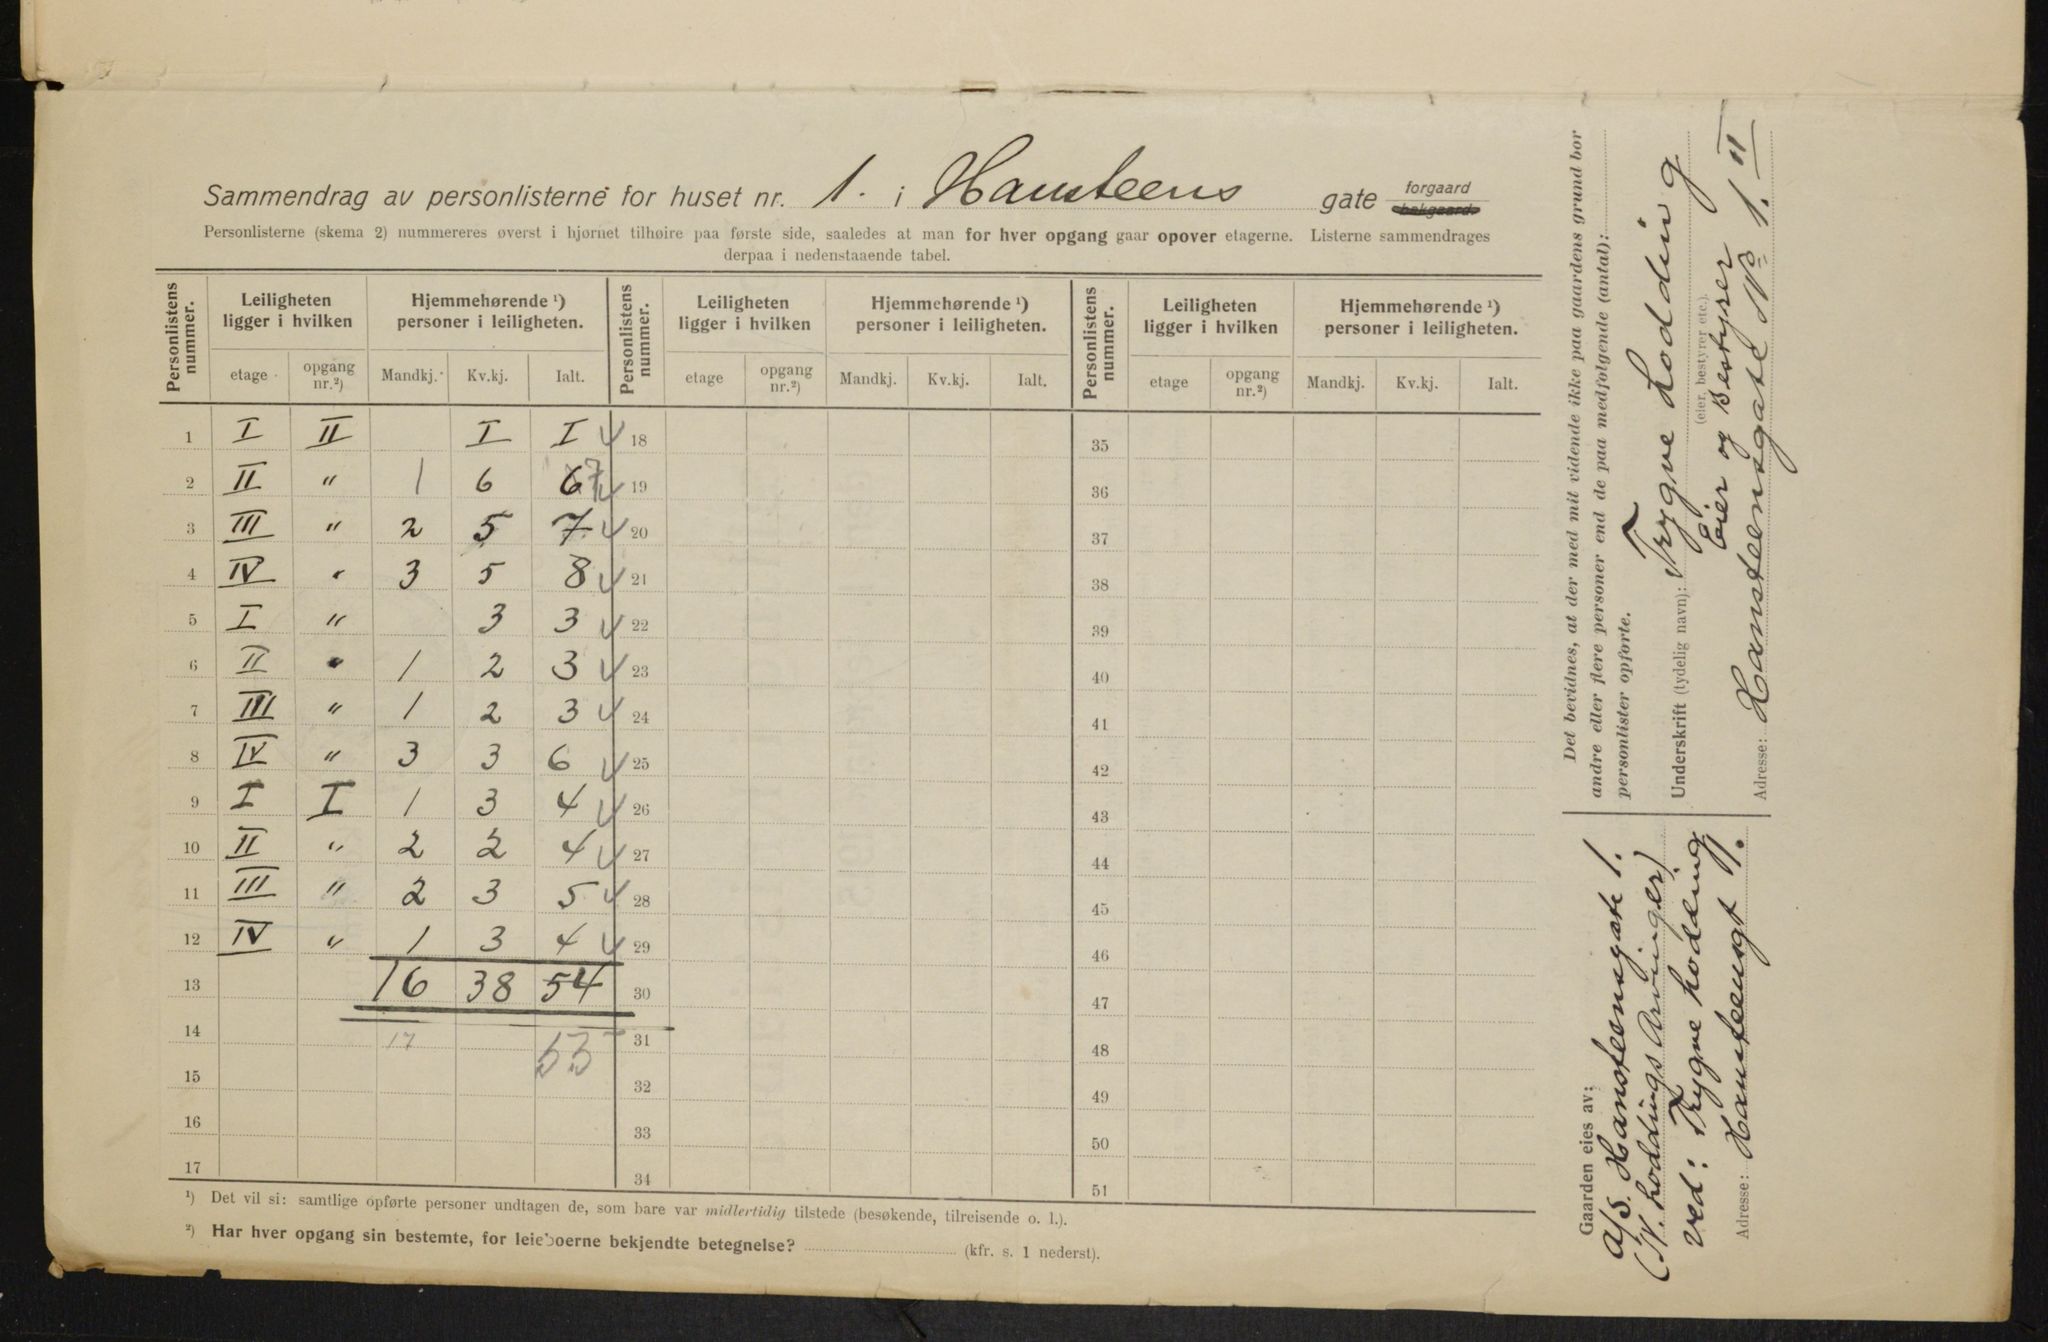 Sammendrag av personlisterne for huset nr. 1. i Hansteens gate forgaard bakgaard.
Personlisterne (skema 2) nummereres øverst i hjørnet tilhøire paa første side, saaledes at man for hver opgang gaar opover etagerne. Listerne sammendrages
derpaa i nedenstaaende tabel.
Personlistens nummer. Leiligheten ligger i hvilken Hjemmehørende ¹) personer i leiligheten. Personlistens nummer. Leiligheten ligger i hvilken Hjemmehørende ¹) personer i leiligheten. Personlistens nummer. Leiligheten ligger i hvilken Hjemmehørende ¹) personer i leiligheten.
etage opgang nr.²) Mandkj. Kv.kj. Ialt. etage opgang nr.²) Mandkj. Kv.kj. Ialt. etage opgang nr.²) Mandkj. Kv.kj. Ialt.
1 I II I I 18 35
2 II " 1 6 6 7 19 36
3 III " 2 5 7 20 37
4 IV " 3 5 8 21 38
5 I " 3 3 22 39
6 II " 1 2 3 23 40
7 III " 1 2 3 24 41
8 IV " 3 3 6 25 42
9 I I 1 3 4 26 43
10 II " 2 2 4 27 44
11 III " 2 3 5 28 45
12 IV " 1 3 4 29 46
13 16 38 54 30 47
14 17 31 48
15 32 49
16 33 50
17 34 51
¹) Det vil si: samtlige opførte personer undtagen de, som bare var midlertidig tilstede (besøkende, tilreisende o. l.).
²) Har hver opgang sin bestemte, for leieboerne bekjendte betegnelse? (kfr. s. 1 nederst).
Det bevidnes, at der med mit vidende ikke paa gaardens grund bor
andre eller flere personer end de paa medfølgende (antal):
personlister opførte.
Underskrift (tydelig navn): Trygve Lodding
(eier, bestyrer etc.).
Eier og Bestyrer
Adresse: Hansteensgate No 1. II
Gaarden eies av:
A/S. Hansteensgate 1.
(N. Loddings Arvinger)
ved: Trygve Lodding
Adresse: Hansteensgt 1.